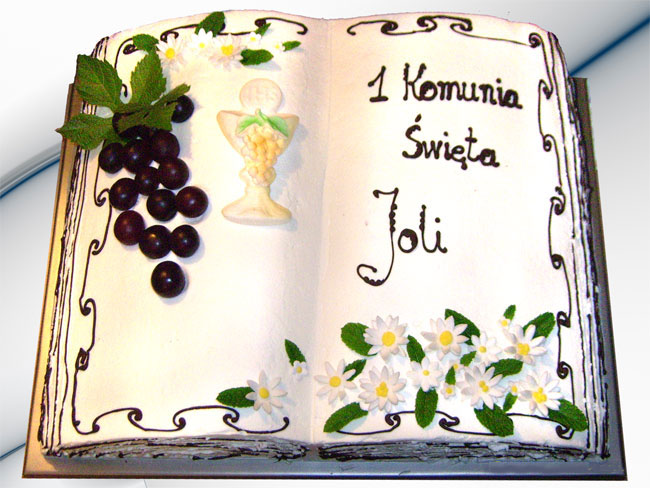 1 Komunia
Święta
Joli